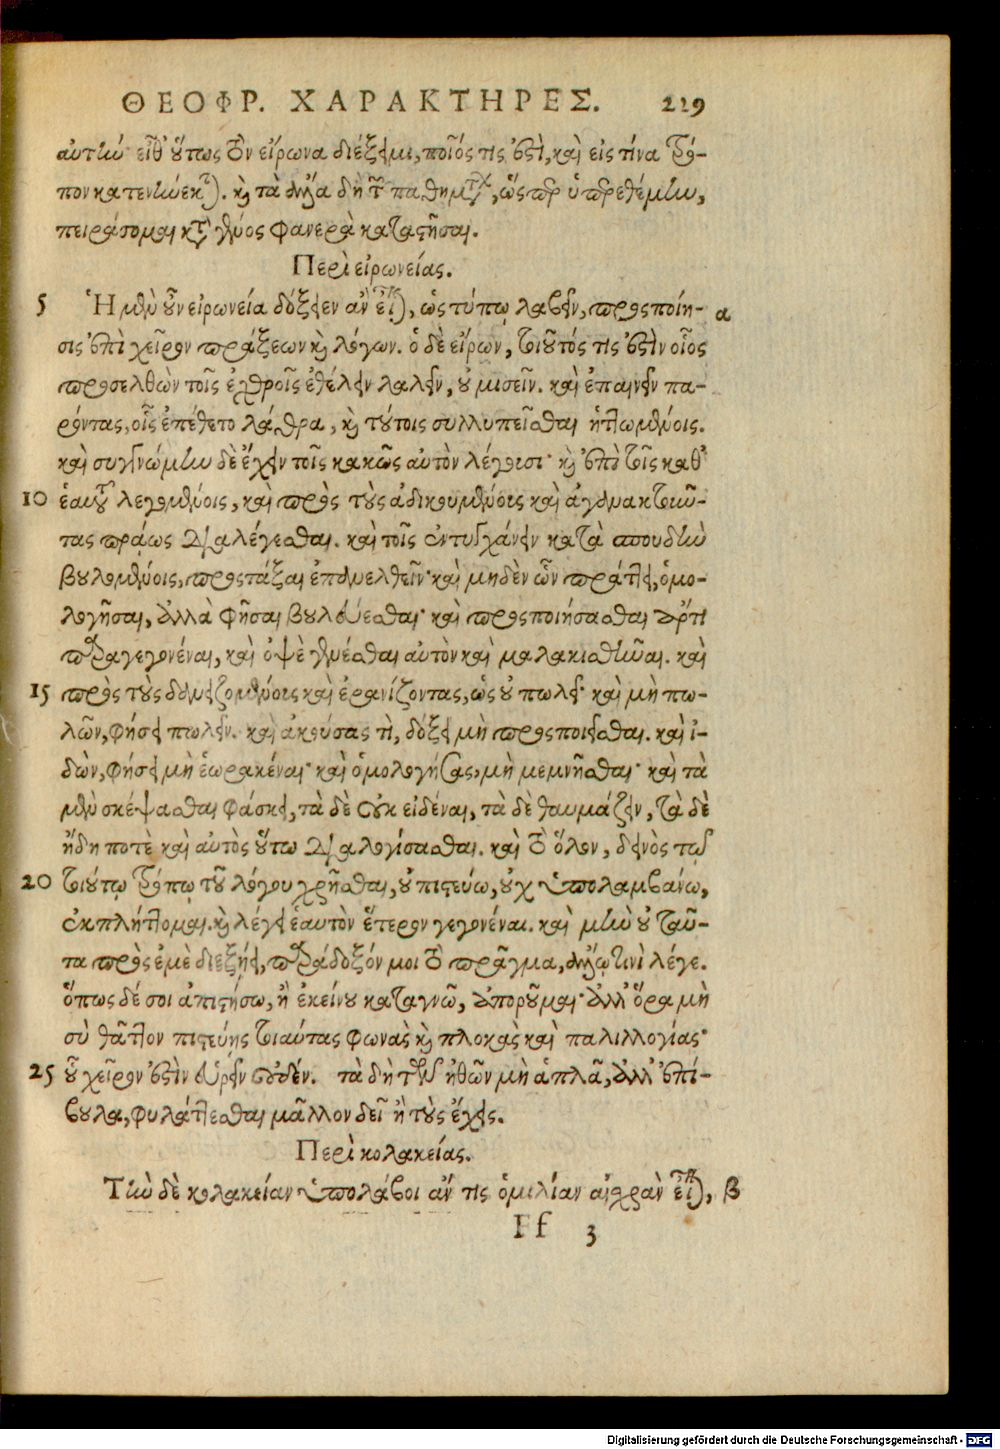 ΘΕΟΦΡ. ΧΑΡΑΚΤΗΡΕΣ. 229
αὐτὴν εἶθ' οὕτως τὸν εἴρωνα διέξειμι, ποῖός τις ἐστὶ, καὶ εἰς τίνα τρό-
πον κατενήνεκται. καὶ τὰ ἄλλα δὴ τῶν παθημάτων, ὥσπερ ὑπερεθέμην,
πειράσομαι κατὰ γένος φανερὰ καταστῆσαι.
Περὶ εἰρωνείας.
5 Ἡ μὲν οὖν εἰρωνεία δόξειεν ἂν εἶναι, ὡς τύπῳ λαβεῖν, προςποίη- α
σις ἐπὶ χεῖρον πράξεων καὶ λόγων. ὁ δὲ εἴρων, τοιοῦτός τις ἐστὶν οἷος
προσελθὼν τοῖς ἐχθροῖς ἐθέλειν λαλεῖν, οὐ μισεῖν. καὶ ἐπαινεῖν πα-
ρόντας, οἷς ἐπέθετο λάθρα, καὶ τούτοις συλλυπεῖσθαι ἡττωμένοις.
καὶ συγγνώμην δὲ ἔχειν τοῖς κακῶς αὐτὸν λέγουσι· καὶ ἐπὶ τοῖς καθ'
10 ἑαυτοῦ λεγομένοις, καὶ πρὸς τοὺς ἀδικουμένους καὶ ἀγανακτοῦν-
τας πράως διαλέγεσθαι. καὶ τοῖς ἐντυγχάνειν κατὰ σπουδὴν
βουλομένοις, προςτάξαι ἐπανελθεῖν· καὶ μηδὲν ὧν πράττει, ὁμο-
λογῆσαι, ἀλλὰ φῆσαι βουλεύεσθαι· καὶ προςποιήσασθαι ἄρτι
παραγεγονέναι, καὶ ὀψὲ γενέσθαι αὐτὸν καὶ μαλακισθῆναι. καὶ
15 πρὸς τοὺς δανειζομένους καὶ ἐρανίζοντας, ὡς οὐ πωλεῖ· καὶ μὴ πω-
λῶν, φήσει πωλεῖν. καὶ ἀκούσας τὶ, δόξει μὴ προςποιεῖσθαι. καὶ ἰ-
δὼν, φήσει μὴ ἑωρακέναι· καὶ ὁμολογήσας, μὴ μεμνῆσθαι· καὶ τὰ
μὲν σκέψασθαι φάσκει, τὰ δὲ οὐκ εἰδέναι, τὰ δὲ θαυμάζειν, τὰ δὲ
ἤδη ποτὲ καὶ αὐτὸς οὕτω διαλογίσασθαι. καὶ τὸ ὅλον, δεινὸς τῷ
20 τοιούτῳ τρόπῳ τοῦ λόγου χρῆσθαι, οὐ πιστεύω, οὐχ ὑπολαμβάνω,
ἐκπλήττομαι. καὶ λέγει ἑαυτὸν ἕτερον γεγονέναι. καὶ μὴν οὐ ταῦ-
τα πρὸς ἐμὲ διεξῄει, παράδοξόν μοι τὸ πρᾶγμα, ἄλλῳ τινὶ λέγε.
ὅπως δέ σοι ἀπιστήσω, ἢ ἐκείνου καταγνῶ, ἀποροῦμαι· ἀλλ' ὅρα μὴ
σὺ θᾶττον πιστεύῃς τοιαύτας φωνὰς καὶ πλοκὰς καὶ παλιλλογίας·
25 οὗ χεῖρον ἐστὶν εὑρεῖν οὐδέν. τὰ δὴ τῶν ἠθῶν μὴ ἁπλᾶ, ἀλλ' ἐπί-
βουλα, φυλάττεσθαι μᾶλλον δεῖ ἢ τοὺς ἔχεις.
Περὶ κολακείας.
Τὴν δὲ κολακείαν ὑπολάβοι ἄν τις ὁμιλίαν αἰσχρὰν εἶναι, β
Ff 3
Digitalisierung gefördert durch die Deutsche Forschungsgemeinschaft - DFG